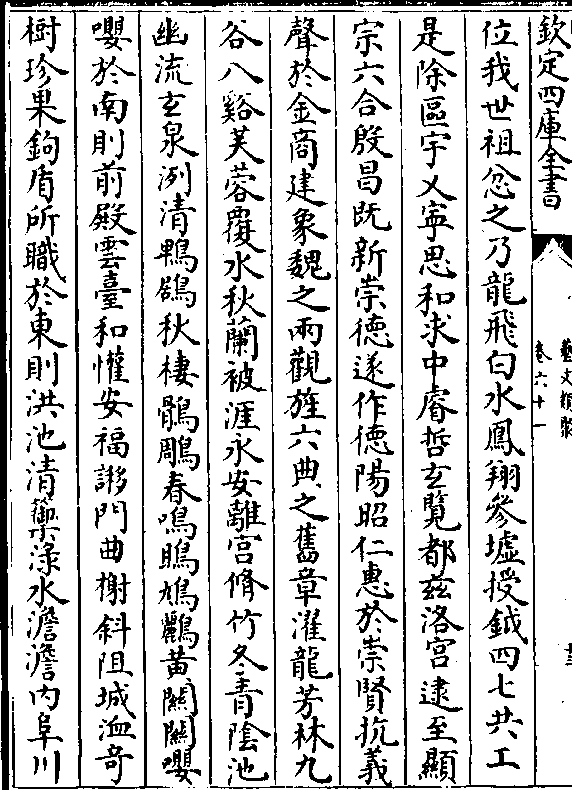 欽定四庫全書
藝文類聚
卷六十一
十三
位我世祖忿之乃龍飛白水鳳翔參墟授鉞四七共工
是除區宇乂寧思和求中睿哲玄覽都兹洛宫逮至顯
宗六合殷昌既新崇德遂作德陽昭仁惠於崇賢抗義
聲於金商建象魏之兩觀旌六典之舊章濯龍芳林九
谷八谿芙蓉覆水秋蘭被涯永安離宫脩竹冬青陰池
幽流玄泉洌清鵯鶋秋棲鶻鵰春鳴鵙鳩鸝黄關關嚶
嚶於南則前殿雲臺和懽安福謻門曲榭斜阻城洫奇
樹珍果鉤盾所職於東則洪池清籞渌水澹澹内阜川